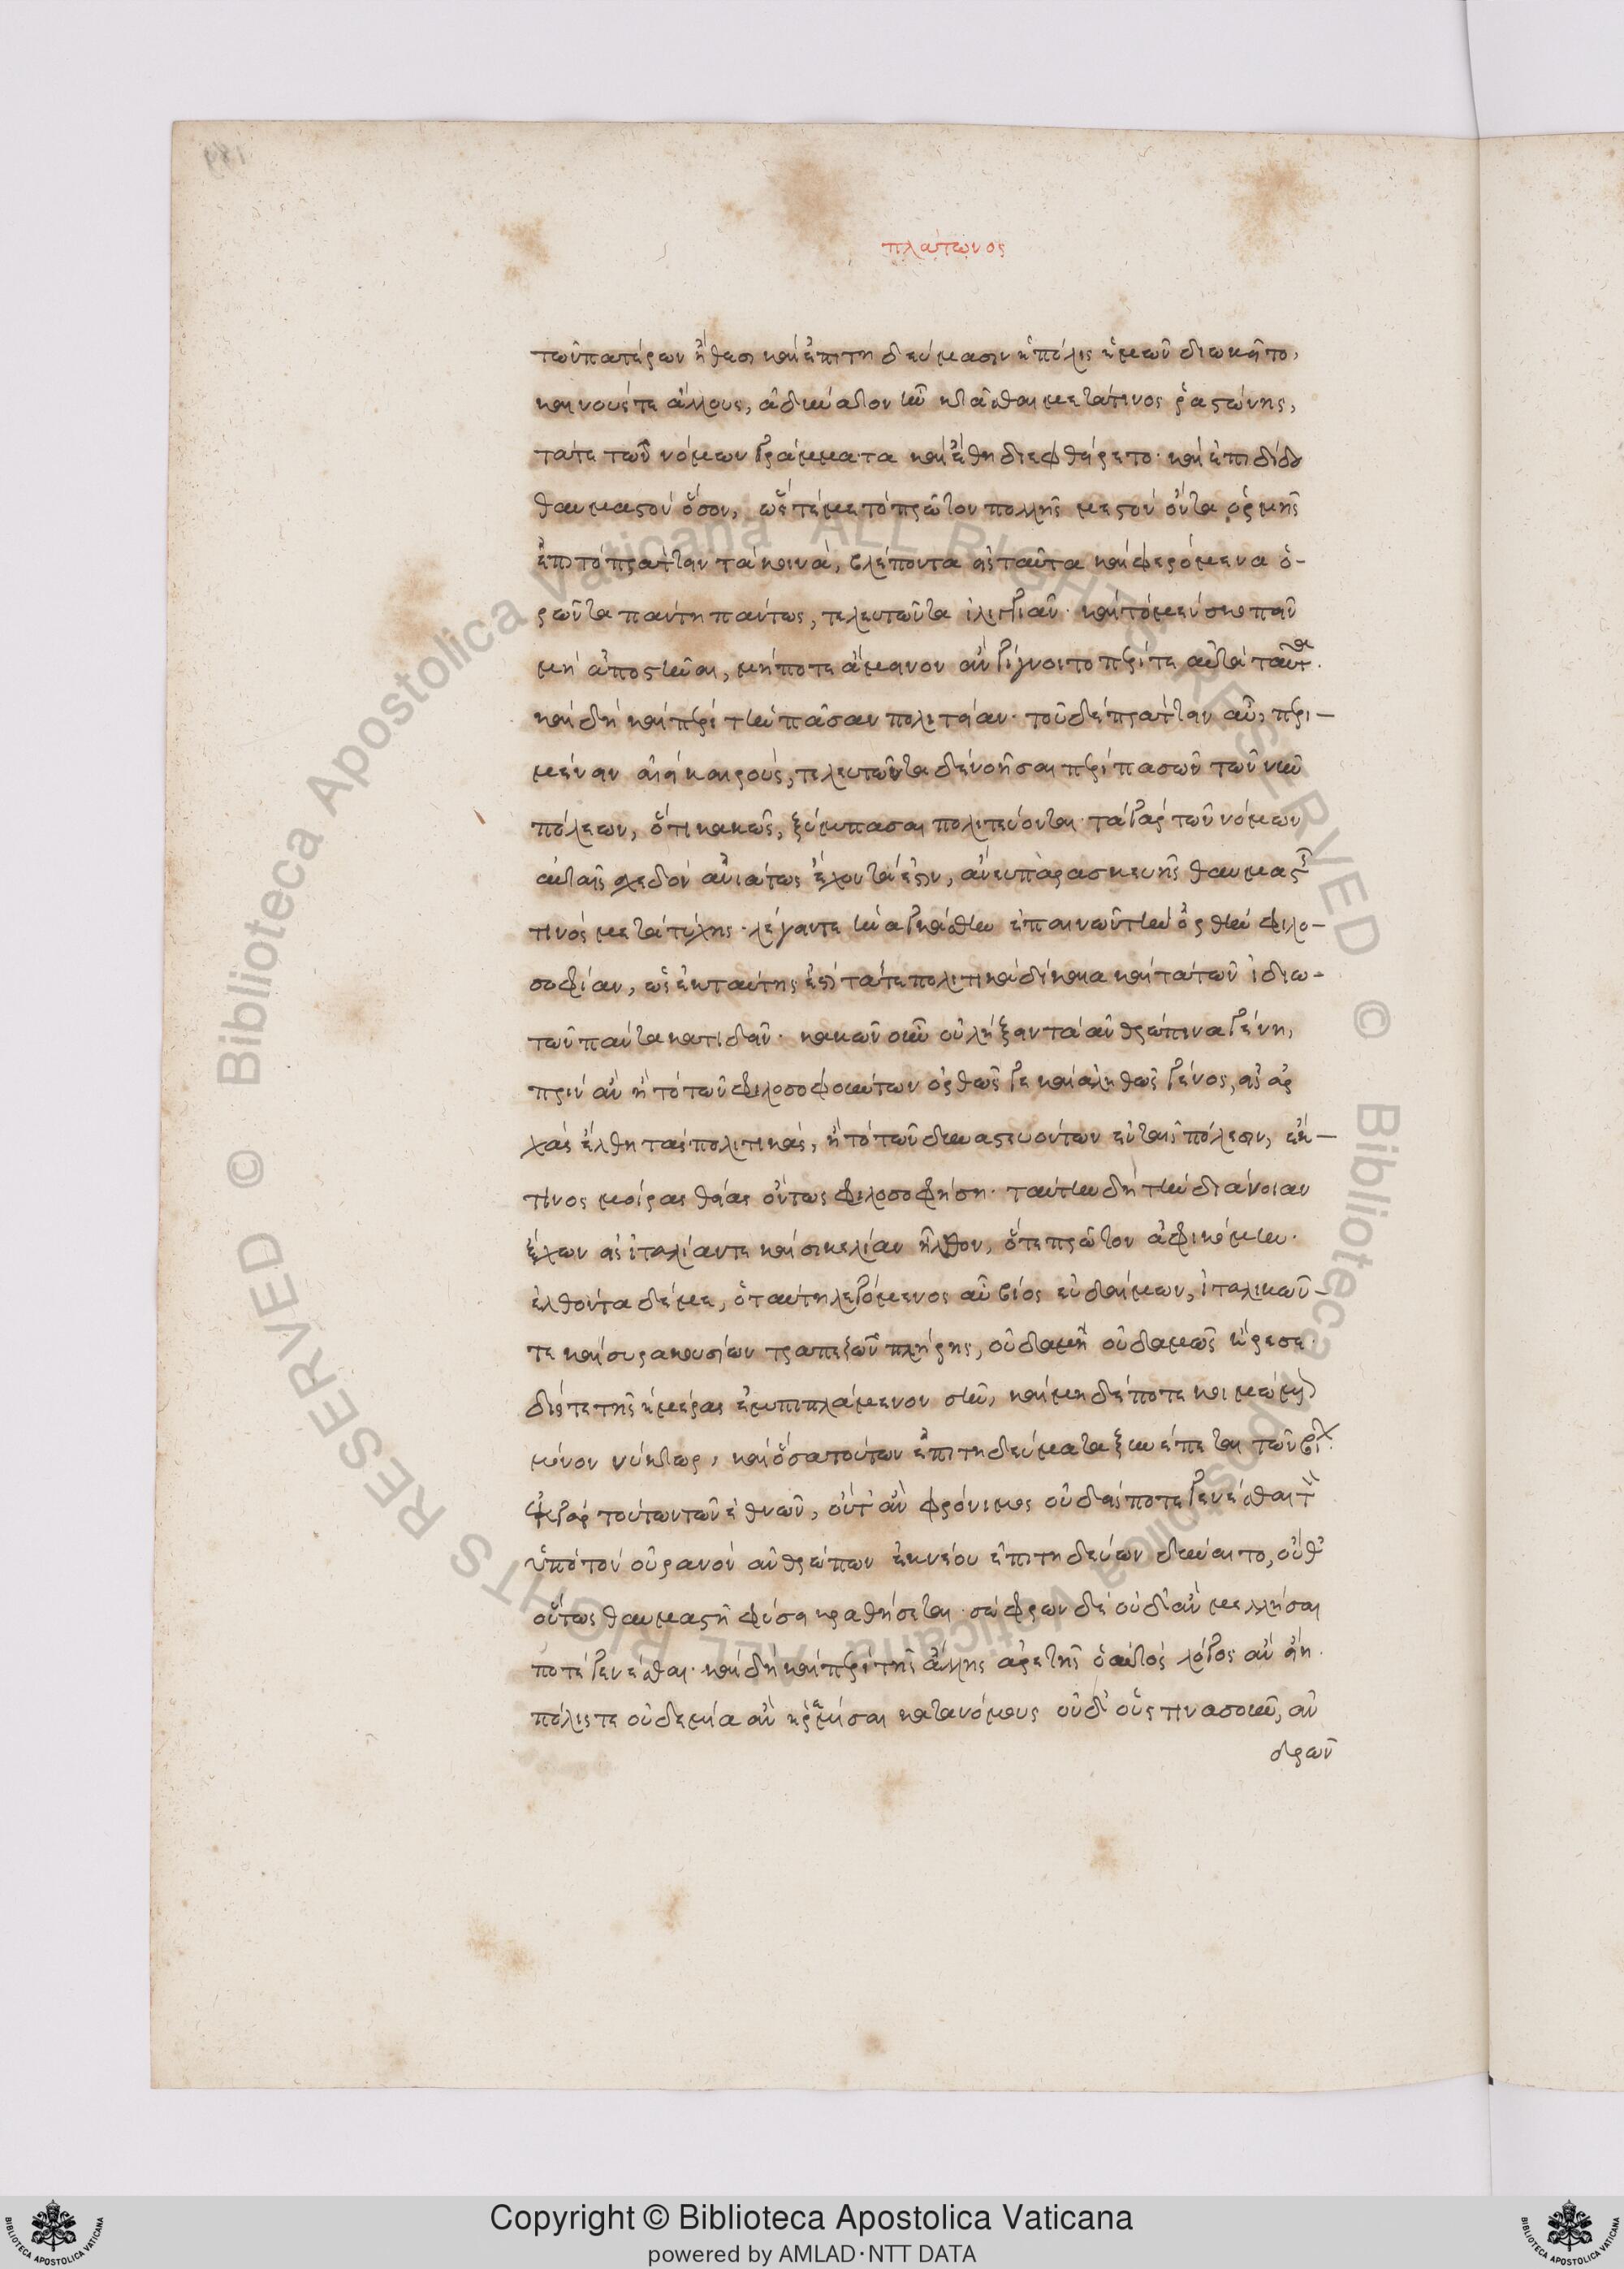 πλάτωνος
τῶν πατέρων ἤθεσι καὶ ἐπιτηδεύμασιν ἡ πόλις ἡμῶν διωκεῖτο,
καινούς τε ἄλλους, ἀδύνατον ἦν κτᾶσθαι μετά τινος ῥαστώνης,
τά τε τῶν νόμων γράμματα καὶ ἔθη διεφθείρετο· καὶ ἐπεδίδου
θαυμαστὸν ὅσον, ὥστέ με τὸ πρῶτον πολλῆς μεστὸν ὄντα ὁρμῆς
ἐπὶ τὸ πράττειν τὰ κοινά, βλέποντα εἰς ταῦτα καὶ φερόμενα ὁ-
ρῶντα πάντη πάντως, τελευτῶντα ἰλιγγιᾶν· καὶ τὸ μὲν σκοπεῖν
μὴ ἀποστῆναι, μήποτε ἄμεινον ἂν γίγνοιτο περί τε αὐτὰ ταῦτα.
καὶ δὴ καὶ περὶ τὴν πᾶσαν πολιτείαν· τοῦ δὲ πράττειν αὖ, περι-
μένειν αἰεὶ καιρούς, τελευτῶντα δὲ νοῆσαι περὶ πασῶν τῶν νῦν
πόλεων, ὅτι κακῶς, ξύμπασαι πολιτεύονται· τὰ γὰρ τῶν νόμων
αὐταῖς σχεδὸν ἀνιάτως ἔχοντά ἐστιν, ἄνευ παρασκευῆς θαυμαστῆς
τινὸς μετὰ τύχης· λέγειν τε ἠναγκάσθην ἐπαινῶν τὴν ὀρθὴν φιλο-
σοφίαν, ὡς ἐκ ταύτης ἔστι τά τε πολιτικὰ δίκαια καὶ τὰ τῶν ἰδιω-
τῶν πάντα κατιδεῖν· κακῶν οὖν οὐ λήξειν τὰ ἀνθρώπινα γένη,
πρὶν ἂν ἢ τὸ τῶν φιλοσοφούντων ὀρθῶς γε καὶ ἀληθῶς γένος, εἰς ἀρ
χὰς ἔλθῃ τὰς πολιτικάς, ἢ τὸ τῶν δυναστευόντων ἐν ταῖς πόλεσιν, ἔκ-
τινος μοίρας θείας ὄντως φιλοσοφήσῃ· ταύτην δὴ τὴν διάνοιαν
ἔχων εἰς ἰταλίαν τε καὶ σικελίαν ἦλθον, ὅτε πρῶτον ἀφικόμην·
ἐλθόντα δέ με, ὁ ταύτη λεγόμενος αὖ βίος εὐδαίμων, ἰταλικῶν-
τε καὶ συρακουσίων τραπεζῶν πλήρης, οὐδαμῇ οὐδαμῶς ἤρεσε·
δίς τε τῆς ἡμέρας ἐμπιπλάμενον ζῆν, καὶ μηδέποτε κοιμώμενον
μόνον νύκτωρ, καὶ ὅσα τούτων ἐπιτηδεύματα ξυνέπεται τῶν βίῳ.
ἐκ γὰρ τούτων τῶν ἐθνῶν, οὔτ' ἂν φρόνιμος οὐδείς ποτε γενέσθαι τῶν
ὑπὸ τὸν οὐρανὸν ἀνθρώπων ἐκ νέου ἐπιτηδεύων δύναιτο, οὐθ'
οὕτως θαυμαστῇ φύσει κραθήσεται· σώφρων δὲ οὐδ' ἂν μελλήσαι
ποτὲ γενέσθαι· καὶ δὴ καὶ περὶ τῆς ἄλλης ἀρετῆς ὁ αὐτὸς λόγος ἂν εἴη.
πόλις τε οὐδεμία ἂν ἠρεμήσαι κατὰ νόμους οὐδ' οὕς τινας οὖν, ἀν
δρῶν
Copyright © Biblioteca Apostolica Vaticana
powered by AMLAD·NTT DATA